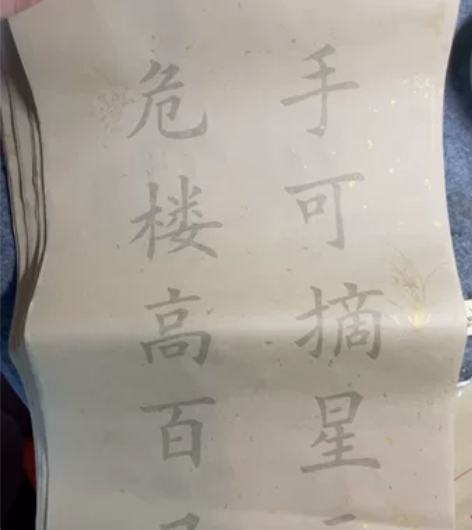 危楼高百
手可摘星